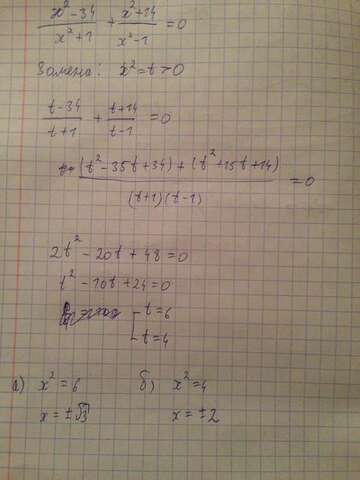 (x²-34)/(x²+1) + (x²+14)/(x²-1) = 0
Замена: x²=t>0
(t-34)/(t+1) + (t+14)/(t-1) = 0
((t²-35t+34)+(t²+15t+14))/((t+1)(t-1)) = 0
2t²-20t+48=0
t²-10t+24=0
[t=6
[t=4
а) x²=6 б) x²=4
x=±√3 x=±2